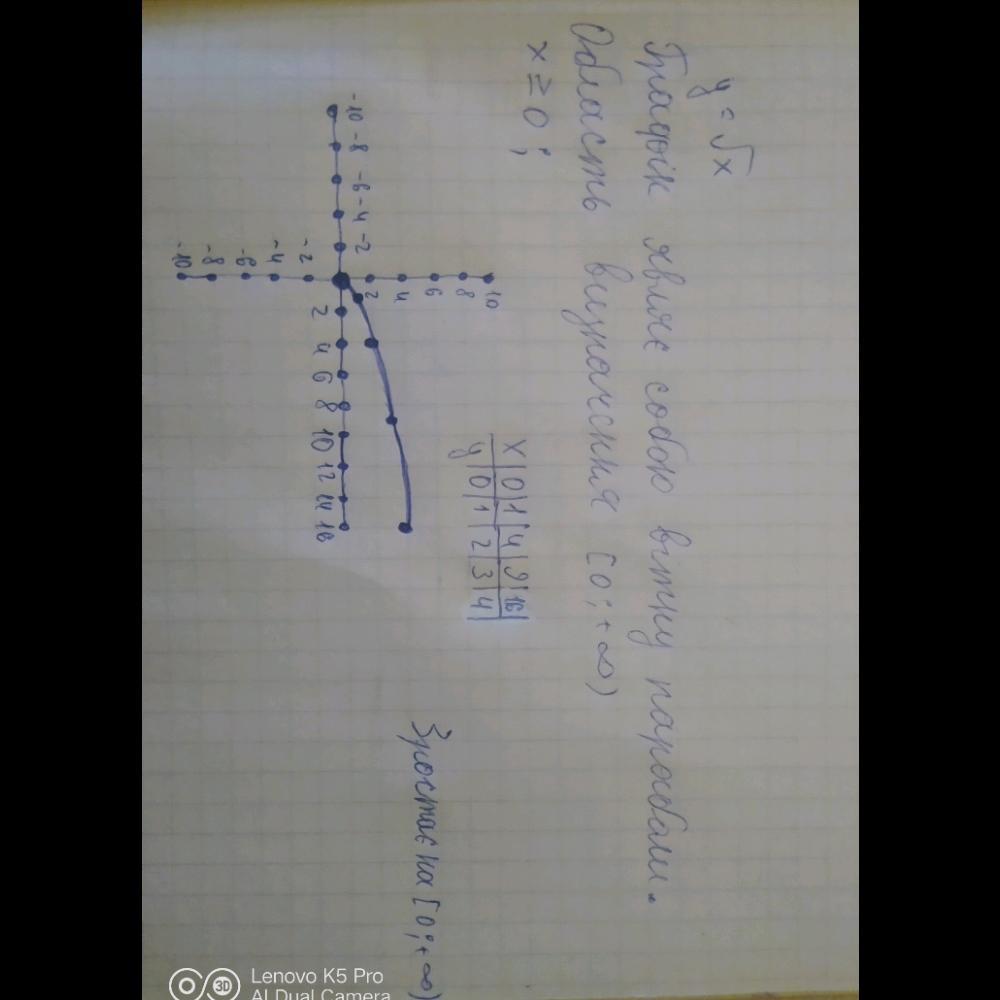 y = √x
Графік являє собою вітку параболи.
Область визначення [0; +∞)
x ≥ 0;
x | 0 | 1 | 4 | 9 | 16 |
y | 0 | 1 | 2 | 3 | 4 |
Зростає на [0; +∞)
10
8
6
4
2
-10 -8 -6 -4 -2 2 4 6 8 10 12 14 16
-2
-4
-6
-8
-10
3D
Lenovo K5 Pro
AI Dual Camera